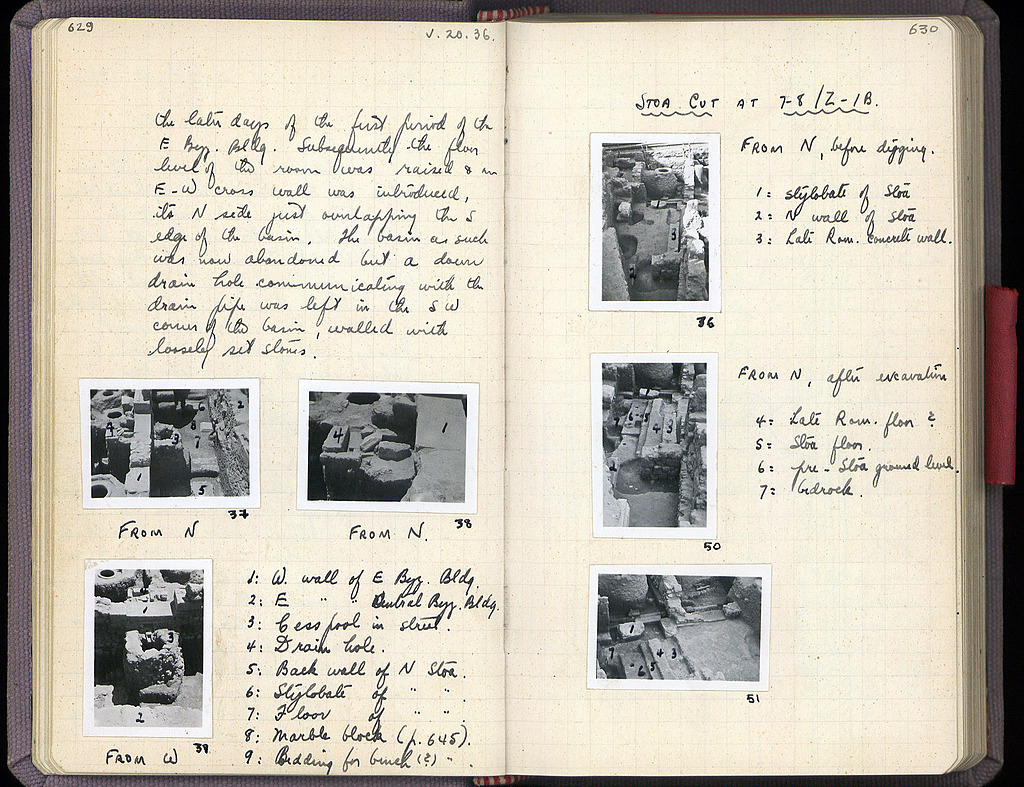 629
V. 20. 36.
the later days of the first period of the
E Byz. Bldg. Subsequently the floor
level of the room was raised & an
E-W cross wall was introduced,
its N side just overlapping the S
edge of the basin. The basin as such
was now abandoned but a down
drain hole communicating with the
drain pipe was left in the SW
corner of the basin, walled with
loosely set stones.
37
38
FROM N
FROM N.
39
FROM W
1: W. wall of E Byz. Bldg.
2: E " " Central Byz. Bldg.
3: Cesspool in street.
4: Drain hole.
5: Back wall of N Stoa.
6: Stylobate of " "
7: Floor of " "
8: Marble block (p. 645).
9: Bedding for bench (?) "
630
STOA CUT AT 7-8/Z-1B.
FROM N, before digging.
1: stylobate of Stoa
2: N wall of Stoa
3: Late Rom. concrete wall.
36
FROM N, after excavation
4: Late Rom. floor ?
5: Stoa floor.
6: pre-Stoa ground level.
7: bedrock.
50
51